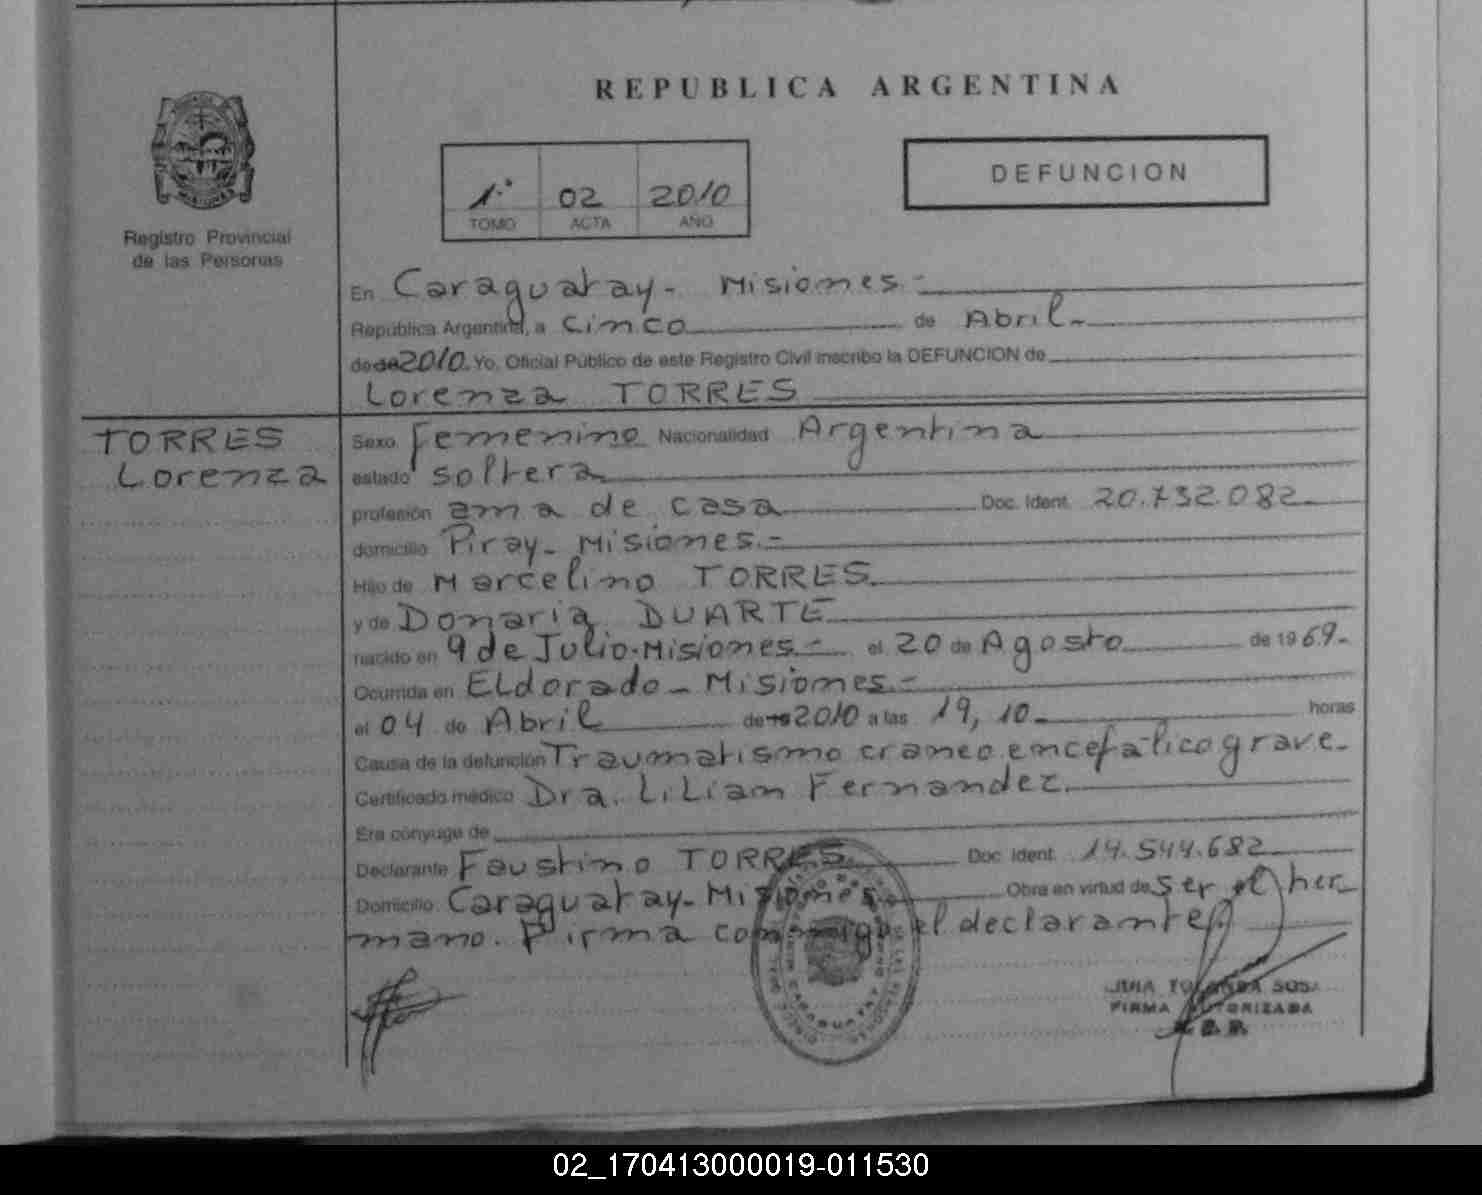 REPUBLICA ARGENTINA
1.° 02 2010
TOMO ACTA AÑO
DEFUNCION
MISIONES
Registro Provincial
de las Personas
En Caraguatay - Misiones.-
República Argentina, a cinco de Abril.-
de de 2010. Yo, Oficial Público de este Registro Civil inscribo la DEFUNCION de
Lorenza TORRES
TORRES
Lorenza
Sexo Femenino Nacionalidad Argentina
estado soltera
profesión ama de casa Doc. Ident. 20.732.082.-
domicilio Piray - Misiones.-
Hijo de Marcelino TORRES.
y de Donaria DUARTE
nacido en 9 de Julio-Misiones.- el 20 de Agosto de 1969.-
Ocurrida en Eldorado - Misiones.-
el 04 de Abril de 19 2010 a las 19,10 horas
Causa de la defunción Traumatismo craneo encefálico grave.-
Certificado médico Dra. Lilian Fernandez.
Era cónyuge de
Declarante Faustino TORRES. Doc. Ident. 14.544.682
Domicilio Caraguatay-Misiones.- Obra en virtud de ser el her-
mano. Firma conmigo el declarante.
YOLANDA SOSA
FIRMA AUTORIZADA
02_170413000019-011530